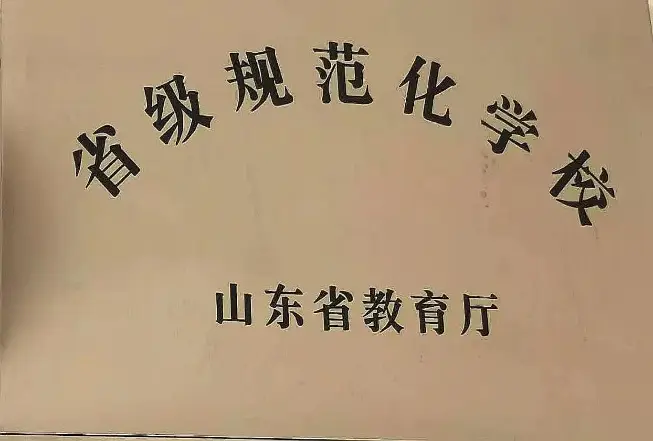 省级规范化学校
山东省教育厅